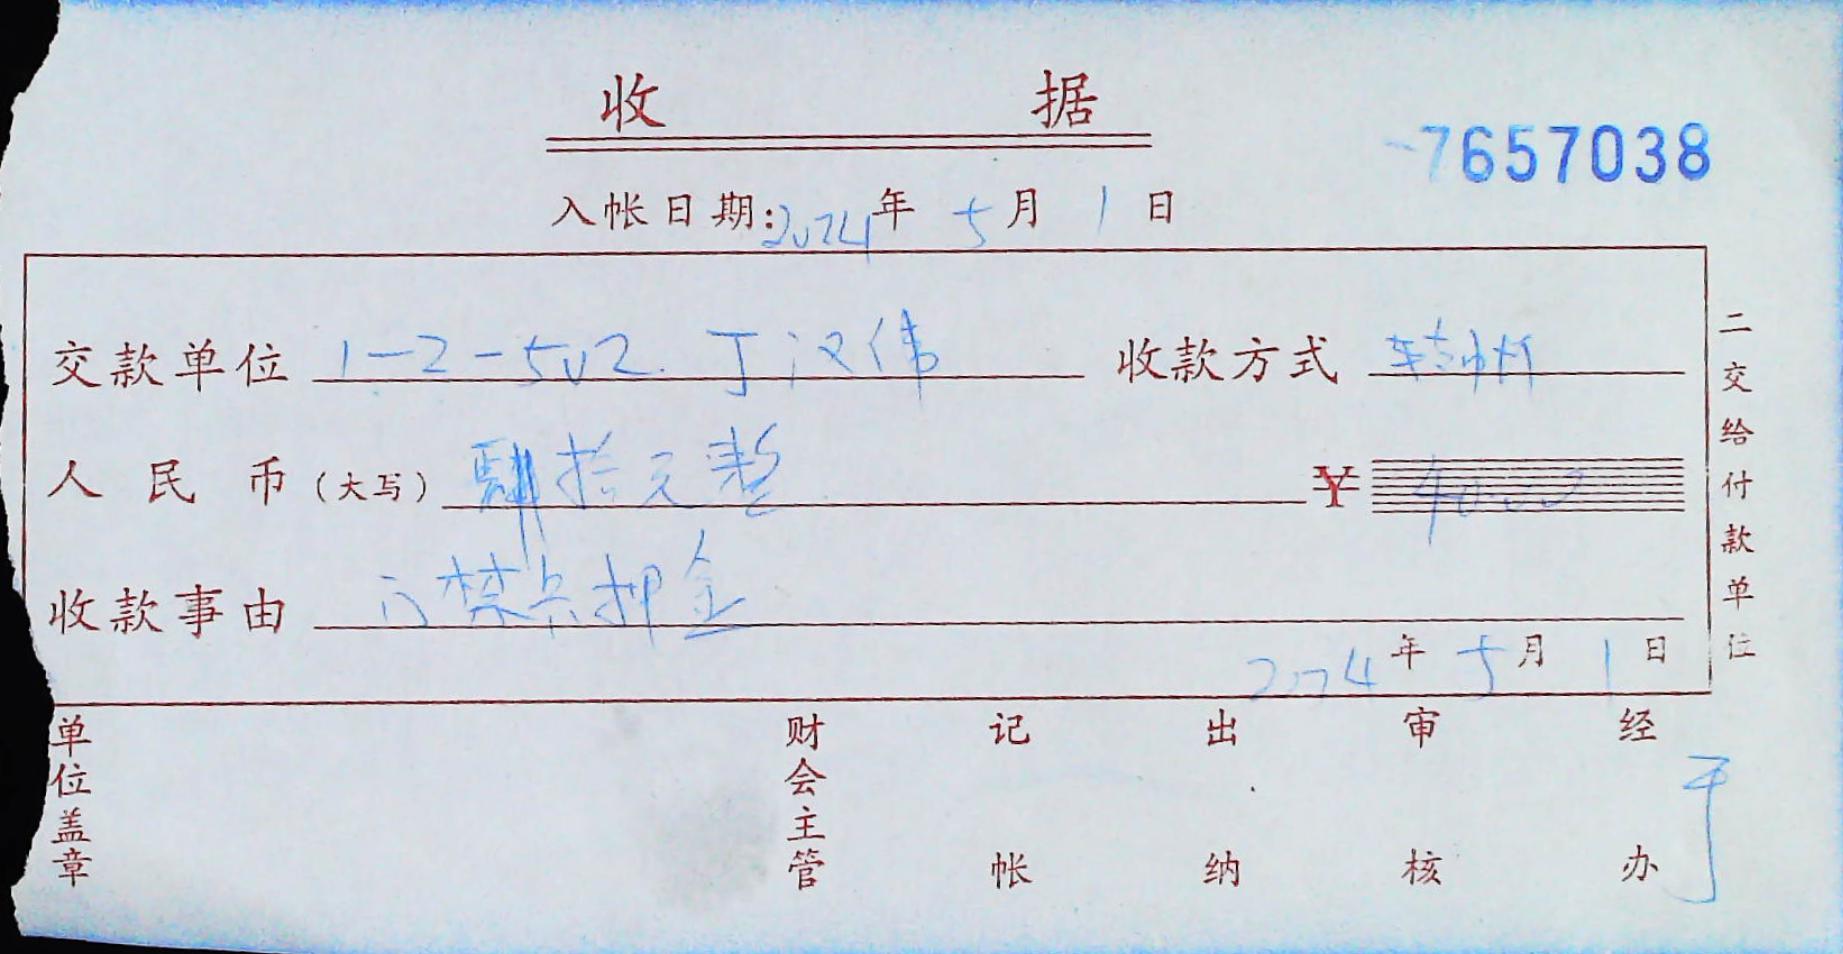 收 据
7657038
入帐日期:2024年 5月 1日
交款单位 1-2-502. 丁汉伟 收款方式 转帐
人民币(大写) 肆拾元整 ¥ 40.00
收款事由 门禁卡押金
2024年 5月 1日
二交给付款单位
单位盖章 财会主管 记帐 出纳 审核 经办